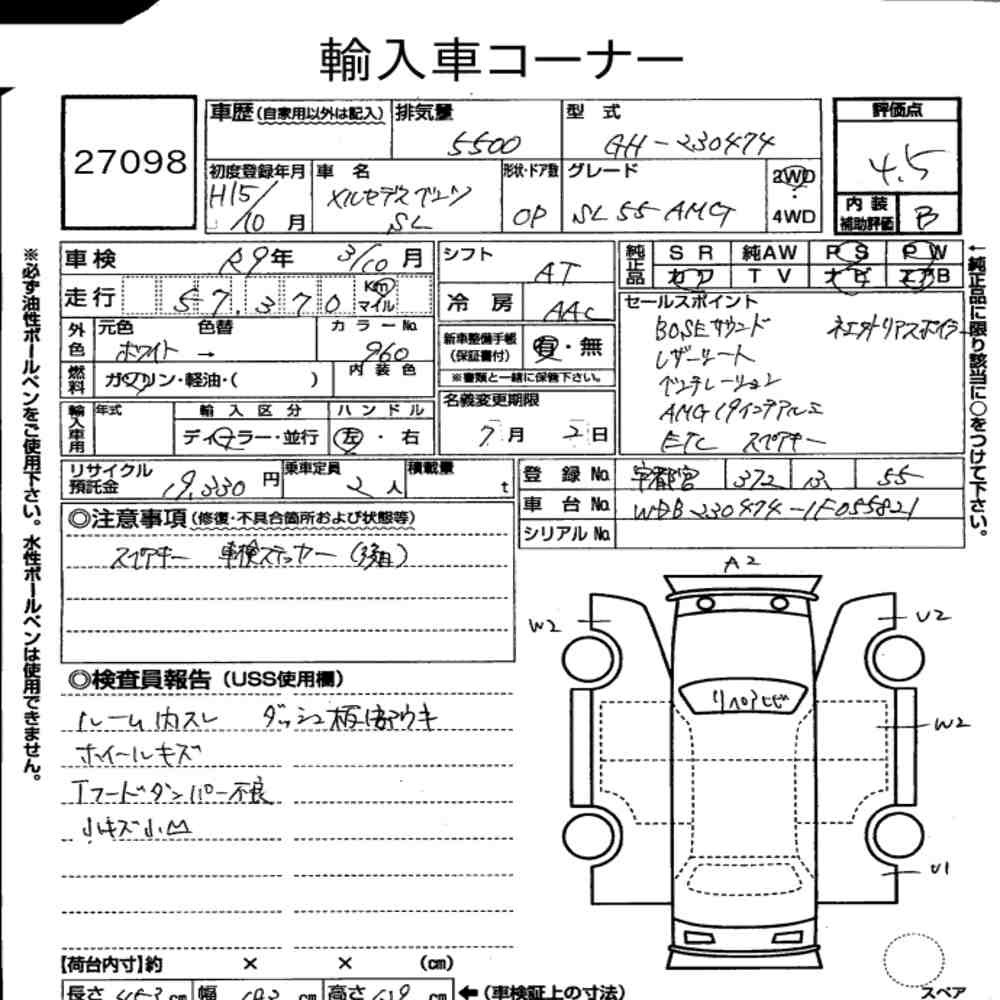 輸入車コーナー
27098
車歴 (自家用以外は記入)
排気量
5500
型 式
GH-230474
評価点
4.5
初度登録年月
H15/10 月
車 名
メルセデスベンツ
SL
形状・ドア数
OP
グレード
SL55 AMG
2WD
・
4WD
内装
補助評価
B
車検
R9年 3/10 月
シフト
AT
純正品
S R
純AW
P S
P W
カワ
T V
ナビ
エアB
走行
57,370
Km
マイル
冷 房
AAC
セールスポイント
BOSEサウンド
レザーシート
ベンチレーション
ETC スペアキー
外色
元色
色替
ホワイト →
カラーNo.
960
新車整備手帳
(保証書付)
有・無
※書類と一緒に保管下さい。
燃料
ガソリン・軽油・( )
内 装 色
名義変更期限
7月 2日
輸入車用
年式
輸 入 区 分
ディーラー・並行
ハ ン ド ル
左 ・ 右
リサイクル
預託金
19,330 円
乗車定員
2 人
積載量
t
登 録 No.
宇都宮
372
55
車 台 No.
WDB230474-1F055821
シリアル No.
◎注意事項 (修復・不具合箇所および状態等)
スペアキー 車検ステッカー
◎検査員報告 (USS使用欄)
ルーム内スレ ダッシュ板部ウキ
ホイールキズ
Fフードダンパー不良
小キズ小凹
A2
W2
U2
リペアヒビ
W2
U1
【荷台内寸】約 × × (cm)
長さ 453 cm
幅
cm
高さ
cm
←(車検証上の寸法)
スペア
※必ず油性ボールペンをご使用下さい。水性ボールペンは使用できません。
←純正品に限り該当に○をつけて下さい。